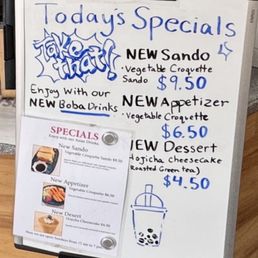 Today's Specials
Take that!
NEW Sando
• Vegetable Croquette
Sando $9.50
Enjoy With our
NEW Boba Drinks
NEW Appetizer
• Vegetable Croquette
$6.50
NEW Dessert
Hojicha cheesecake
(Roasted Green tea)
$4.50
SPECIALS
New Sando
Vegetable Croquette Sando $9.50
New Appetizer
Vegetable Croquette $6.50
New Desert
Hojicha Cheesecake $4.50